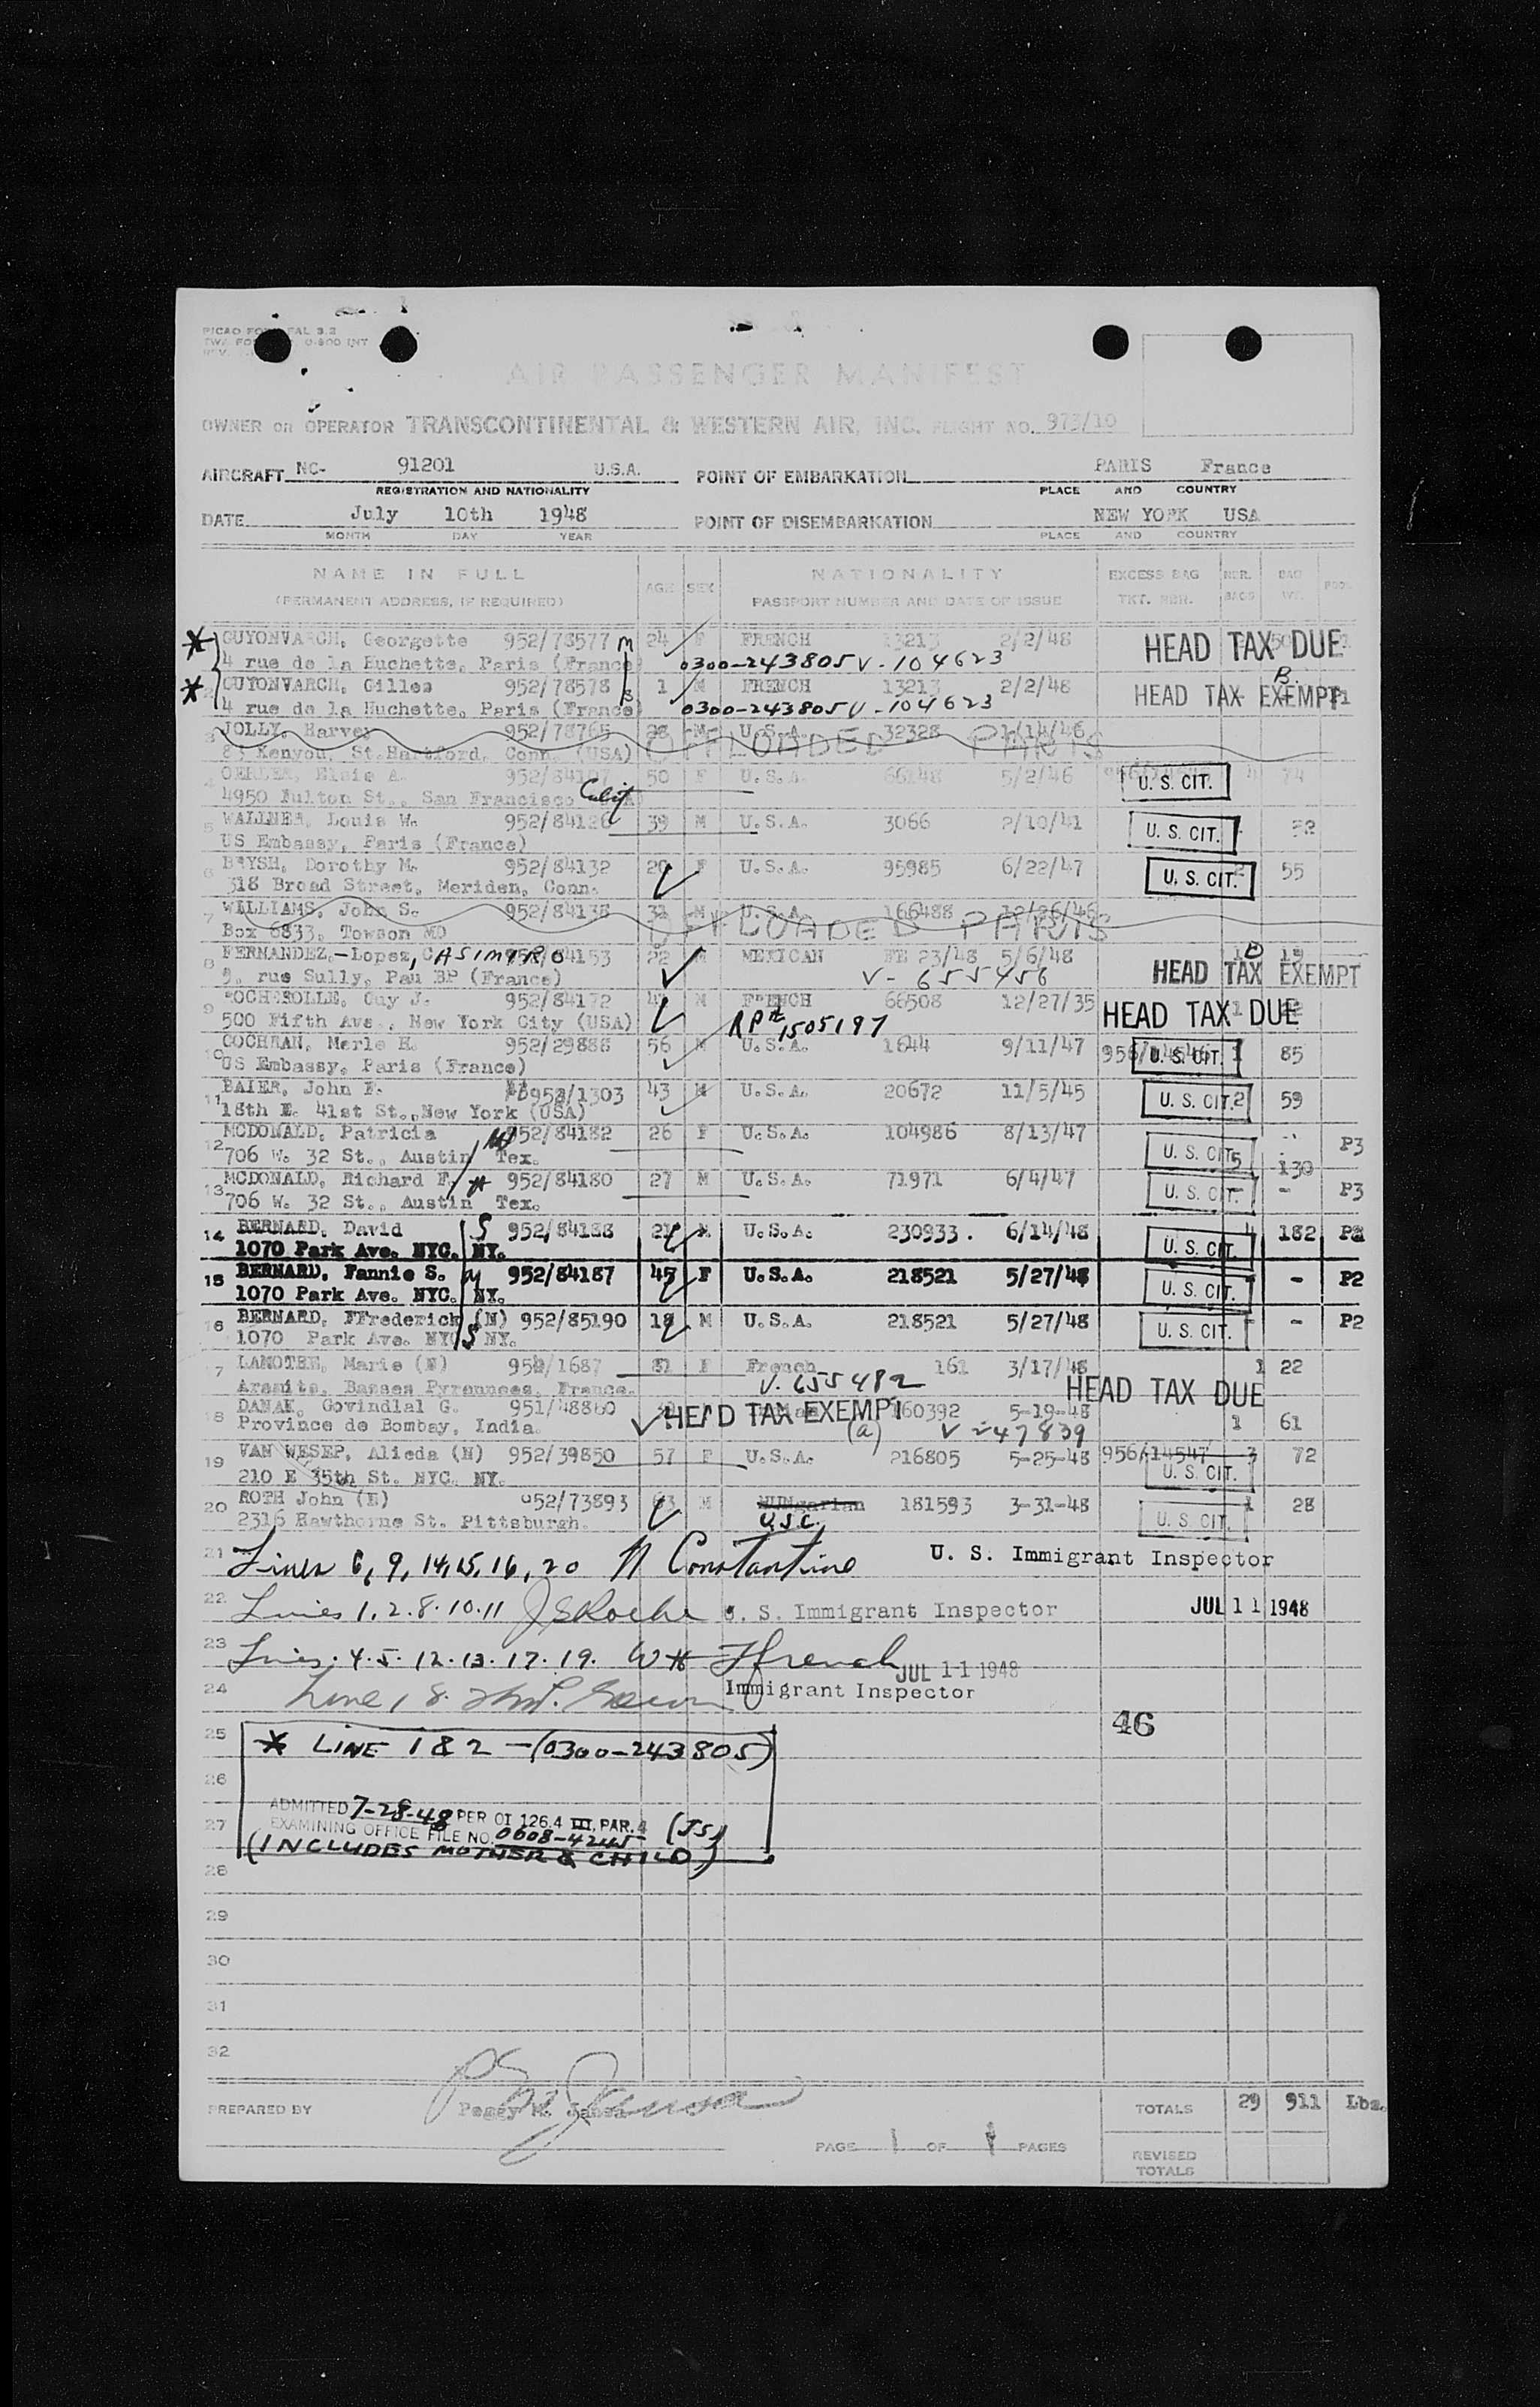 PICAO FO FAL 3.2
TWA FO 0-800 INT
REV.
AIR PASSENGER MANIFEST
OWNER OR OPERATOR TRANSCONTINENTAL & WESTERN AIR, INC. FLIGHT NO. 973/10
AIRCRAFT NC- 91201 U.S.A. POINT OF EMBARKATION PARIS France
REGISTRATION AND NATIONALITY PLACE AND COUNTRY
DATE July 10th 1948 POINT OF DISEMBARKATION NEW YORK USA
MONTH DAY YEAR PLACE AND COUNTRY
NAME IN FULL AGE SEX NATIONALITY EXCESS BAG NBR. BAG
(PERMANENT ADDRESS, IF REQUIRED) PASSPORT NUMBER AND DATE OF ISSUE TKT. NBR. BAGS WT.
* GUYONVARCH, Georgette 952/78577 M 24 F FRENCH 13213 2/2/48 HEAD TAX DUE
4 rue de la Huchette, Paris (France) 0300-243805 V-104623
* GUYONVARCH, Gilles 952/78578 S 1 M FRENCH 13213 2/2/48 HEAD TAX EXEMPT B.
4 rue de la Huchette, Paris (France) 0300-243805 V-104623
3 JOLLY, Harvey 952/78765 28 M U.S.A. 32328 1/14/46
83 Kenyon, St.Hartford, Conn. (USA) OFFLOADED PARIS
4 OERLER, Elsie A. 50 F U.S.A. 66148 5/2/46 U. S. CIT. 4 74
4950 Fulton St., San Francisco Calif
5 WALLNER, Louis W. 952/84126 39 M U.S.A. 3066 2/10/41 U. S. CIT. 52
US Embassy, Paris (France)
6 BRYSH, Dorothy M. 952/84132 20 F U.S.A. 95985 6/22/47 U. S. CIT. 2 55
318 Broad Street, Meriden, Conn.
7 WILLIAMS, John S. 952/84138 31 M U.S.A. 166488 12/26/46
Box 6833, Towson MD OFFLOADED PARIS
8 FERNANDEZ,-Lopez, CASIMIRO 952/84153 22 M MEXICAN FE 23/48 5/6/48
9, rue Sully, Pau BP (France) V- 655456 HEAD TAX EXEMPT
9 ROCHEROLLE, Guy J. 952/84172 M FRENCH 66508 12/27/35 HEAD TAX DUE
500 Fifth Ave., New York City (USA) RP# 1505197
10 COCHRAN, Merle H. 952/29888 56 M U.S.A. 1644 9/11/47 U. S. CIT. 1 85
US Embassy, Paris (France)
11 BAIER, John F. 953/1303 43 M U.S.A. 20672 11/5/45 U. S. CIT. 2 59
18th E. 41st St., New York (USA)
12 MCDONALD, Patricia 952/84182 26 F U.S.A. 104986 8/13/47 U. S. CIT. 5 130 P3
706 W. 32 St., Austin Tex.
13 MCDONALD, Richard F. 952/84180 27 M U.S.A. 71971 6/4/47 U. S. CIT. - P3
706 W. 32 St., Austin Tex.
14 BERNARD, David S 952/84188 21 M U.S.A. 230933. 6/14/48 U. S. CIT. 4 182 P2
1070 Park Ave. NYC. NY.
15 BERNARD, Fannie S. M 952/84187 45 F U.S.A. 218521 5/27/48 U. S. CIT. - P2
1070 Park Ave. NYC. NY.
16 BERNARD, FFrederick (N) 952/85190 18 M U.S.A. 218521 5/27/48 U. S. CIT. - P2
1070 Park Ave. NYC S NY.
17 LAMOTHE, Marie (N) 952/1687 31 F French 161 3/17/48 1 22
Aramits, Basses Pyrennees, France. V. 655482 HEAD TAX DUE
18 DANAK, Govindlal G. 951/48860 HEAD TAX EXEMPT 160392 5-19-48
Province de Bombay, India. (a) V 247839 1 61
19 VAN WESEP, Alieda (N) 952/39850 57 F U.S.A. 216805 5-25-48 956/14547 3 72
210 E 35th St. NYC. NY. U. S. CIT.
20 ROTH John (N) 952/73893 63 M HUNgarian 181593 3-31-48 1 28
2316 Hawthorne St. Pittsburgh. U.S.C. U. S. CIT.
21 Lines 6, 9, 14, 15, 16, 20 N Constantine U. S. Immigrant Inspector
22 Lines 1. 2. 8. 10. 11 J S Roche U. S. Immigrant Inspector JUL 11 1948
23 Lines. 4. 5. 12. 13. 17. 19. W H Ffrench JUL 11 1948
24 Line 18. Immigrant Inspector
46
25 * LINE 1 & 2 - (0300-243805)
26
ADMITTED 7-28-48 PER OI 126.4 III, PAR. 4 (JS)
27 EXAMINING OFFICE FILE NO. 0608-4245
(INCLUDES MOTHER & CHILD)
28
29
30
31
32
PREPARED BY Peggy M. Jansa TOTALS 29 911 Lbs.
PAGE 1 OF 1 PAGES REVISED TOTALS